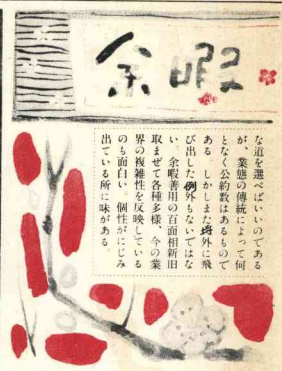 余暇
な道を選べばいいのである
が、業態の傳統によって何
となく公約数はあるもので
ある しかしまた埒外に飛
び出した例外もないではな
い。余暇善用の百面相新旧
取まぜて各種多様、今の業
界の複雑性を反映している
のも面白い。個性がにじみ
出ている所に味がある。